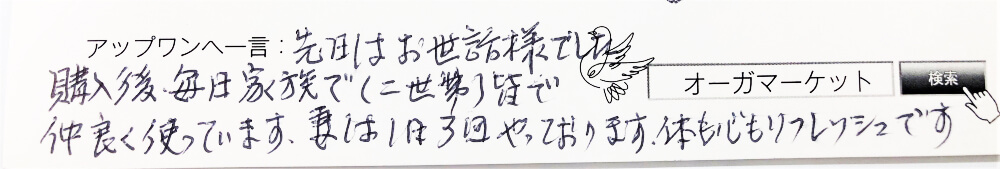 アップワンへ一言：先日はお世話様でした
購入後、毎日家族で（二世帯）皆で
オーガマーケット 検索
仲良く使っています、妻は1日3回やっております、体も心もリフレッシュです